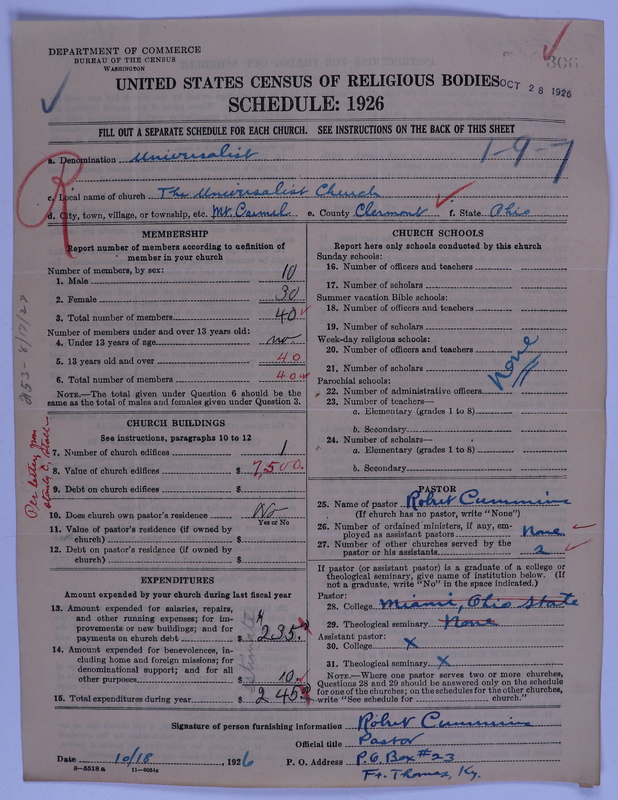 DEPARTMENT OF COMMERCE
BUREAU OF THE CENSUS
WASHINGTON
366
OCT 28 1926
UNITED STATES CENSUS OF RELIGIOUS BODIES
SCHEDULE: 1926
FILL OUT A SEPARATE SCHEDULE FOR EACH CHURCH. SEE INSTRUCTIONS ON THE BACK OF THIS SHEET
1-9-7
a. Denomination Universalist
c. Local name of church The Universalist Church
d. City, town, village, or township, etc. Mt. Carmel e. County Clermont f. State Ohio
R
MEMBERSHIP
Report number of members according to definition of
member in your church
Number of members, by sex:
1. Male 10
2. Female 30
3. Total number of members 40
Number of members under and over 13 years old:
4. Under 13 years of age no
5. 13 years old and over 40
6. Total number of members 40
NOTE.—The total given under Question 6 should be
same as the total of males and females given under Question 3.
253-8/17/27
CHURCH BUILDINGS
See instructions, paragraphs 10 to 12
7. Number of church edifices 1
8. Value of church edifices $ 7,500.
9. Debt on church edifices $
10. Does church own pastor's residence? No
Yes or No
11. Value of pastor's residence (if owned by
church) $
12. Debt on pastor's residence (if owned by
church) $
Per letter from
EXPENDITURES
Amount expended by your church during last fiscal year
13. Amount expended for salaries, repairs,
and other running expenses; for im-
provements or new buildings; and for
payments on church debt $ 235.
14. Amount expended for benevolences, in-
cluding home and foreign missions; for
denominational support; and for all
other purposes $ 10.
15. Total expenditures during year $ 245
CHURCH SCHOOLS
Report here only schools conducted by this church
Sunday schools:
16. Number of officers and teachers
17. Number of scholars
Summer vacation Bible schools:
18. Number of officers and teachers
19. Number of scholars
Week-day religious schools:
20. Number of officers and teachers
21. Number of scholars
None
Parochial schools:
22. Number of administrative officers
23. Number of teachers—
a. Elementary (grades 1 to 8)
b. Secondary
24. Number of scholars—
a. Elementary (grades 1 to 8)
b. Secondary
PASTOR
25. Name of pastor Robert Cummins
(If church has no pastor, write "None")
26. Number of ordained ministers, if any, em-
ployed as assistant pastors None
27. Number of other churches served by the
pastor or his assistants 2
If pastor (or assistant pastor) is a graduate of a college or
theological seminary, give name of institution below. (If
not a graduate, write "No" in the space indicated.)
Pastor:
28. College Miami, Ohio State
29. Theological seminary None
Assistant pastor:
30. College X
31. Theological seminary X
NOTE.—Where one pastor serves two or more churches,
Questions 28 and 29 should be answered only on the schedule
for one of the churches; on the schedules for the other churches,
write "See schedule for church."
Signature of person furnishing information Robert Cummins
Official title Pastor
Date 10/18, 1926 P. O. Address P.O. Box #23
Ft. Thomas, Ky.
8-5518a 11-9054